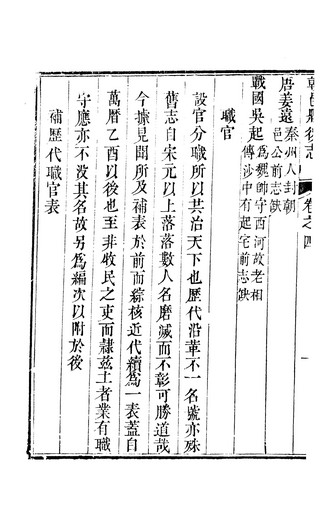 卷之四
唐姜遠秦州人封朝
邑公前志缺
戰國吳起為魏帥守西河故老相
傳沙中有起宅前志缺
職官
設官分職所以共治天下也歷代沿革不一名號亦殊
舊志自宋元以上落落數人名磨滅而不彰可勝道哉
今據見聞所及補表於前而綜核近代續為一表蓋自
萬厯乙酉以後也至非牧民之吏而隸茲土者業有職
守應亦不没其名故另為編次以附於後
補歷代職官表